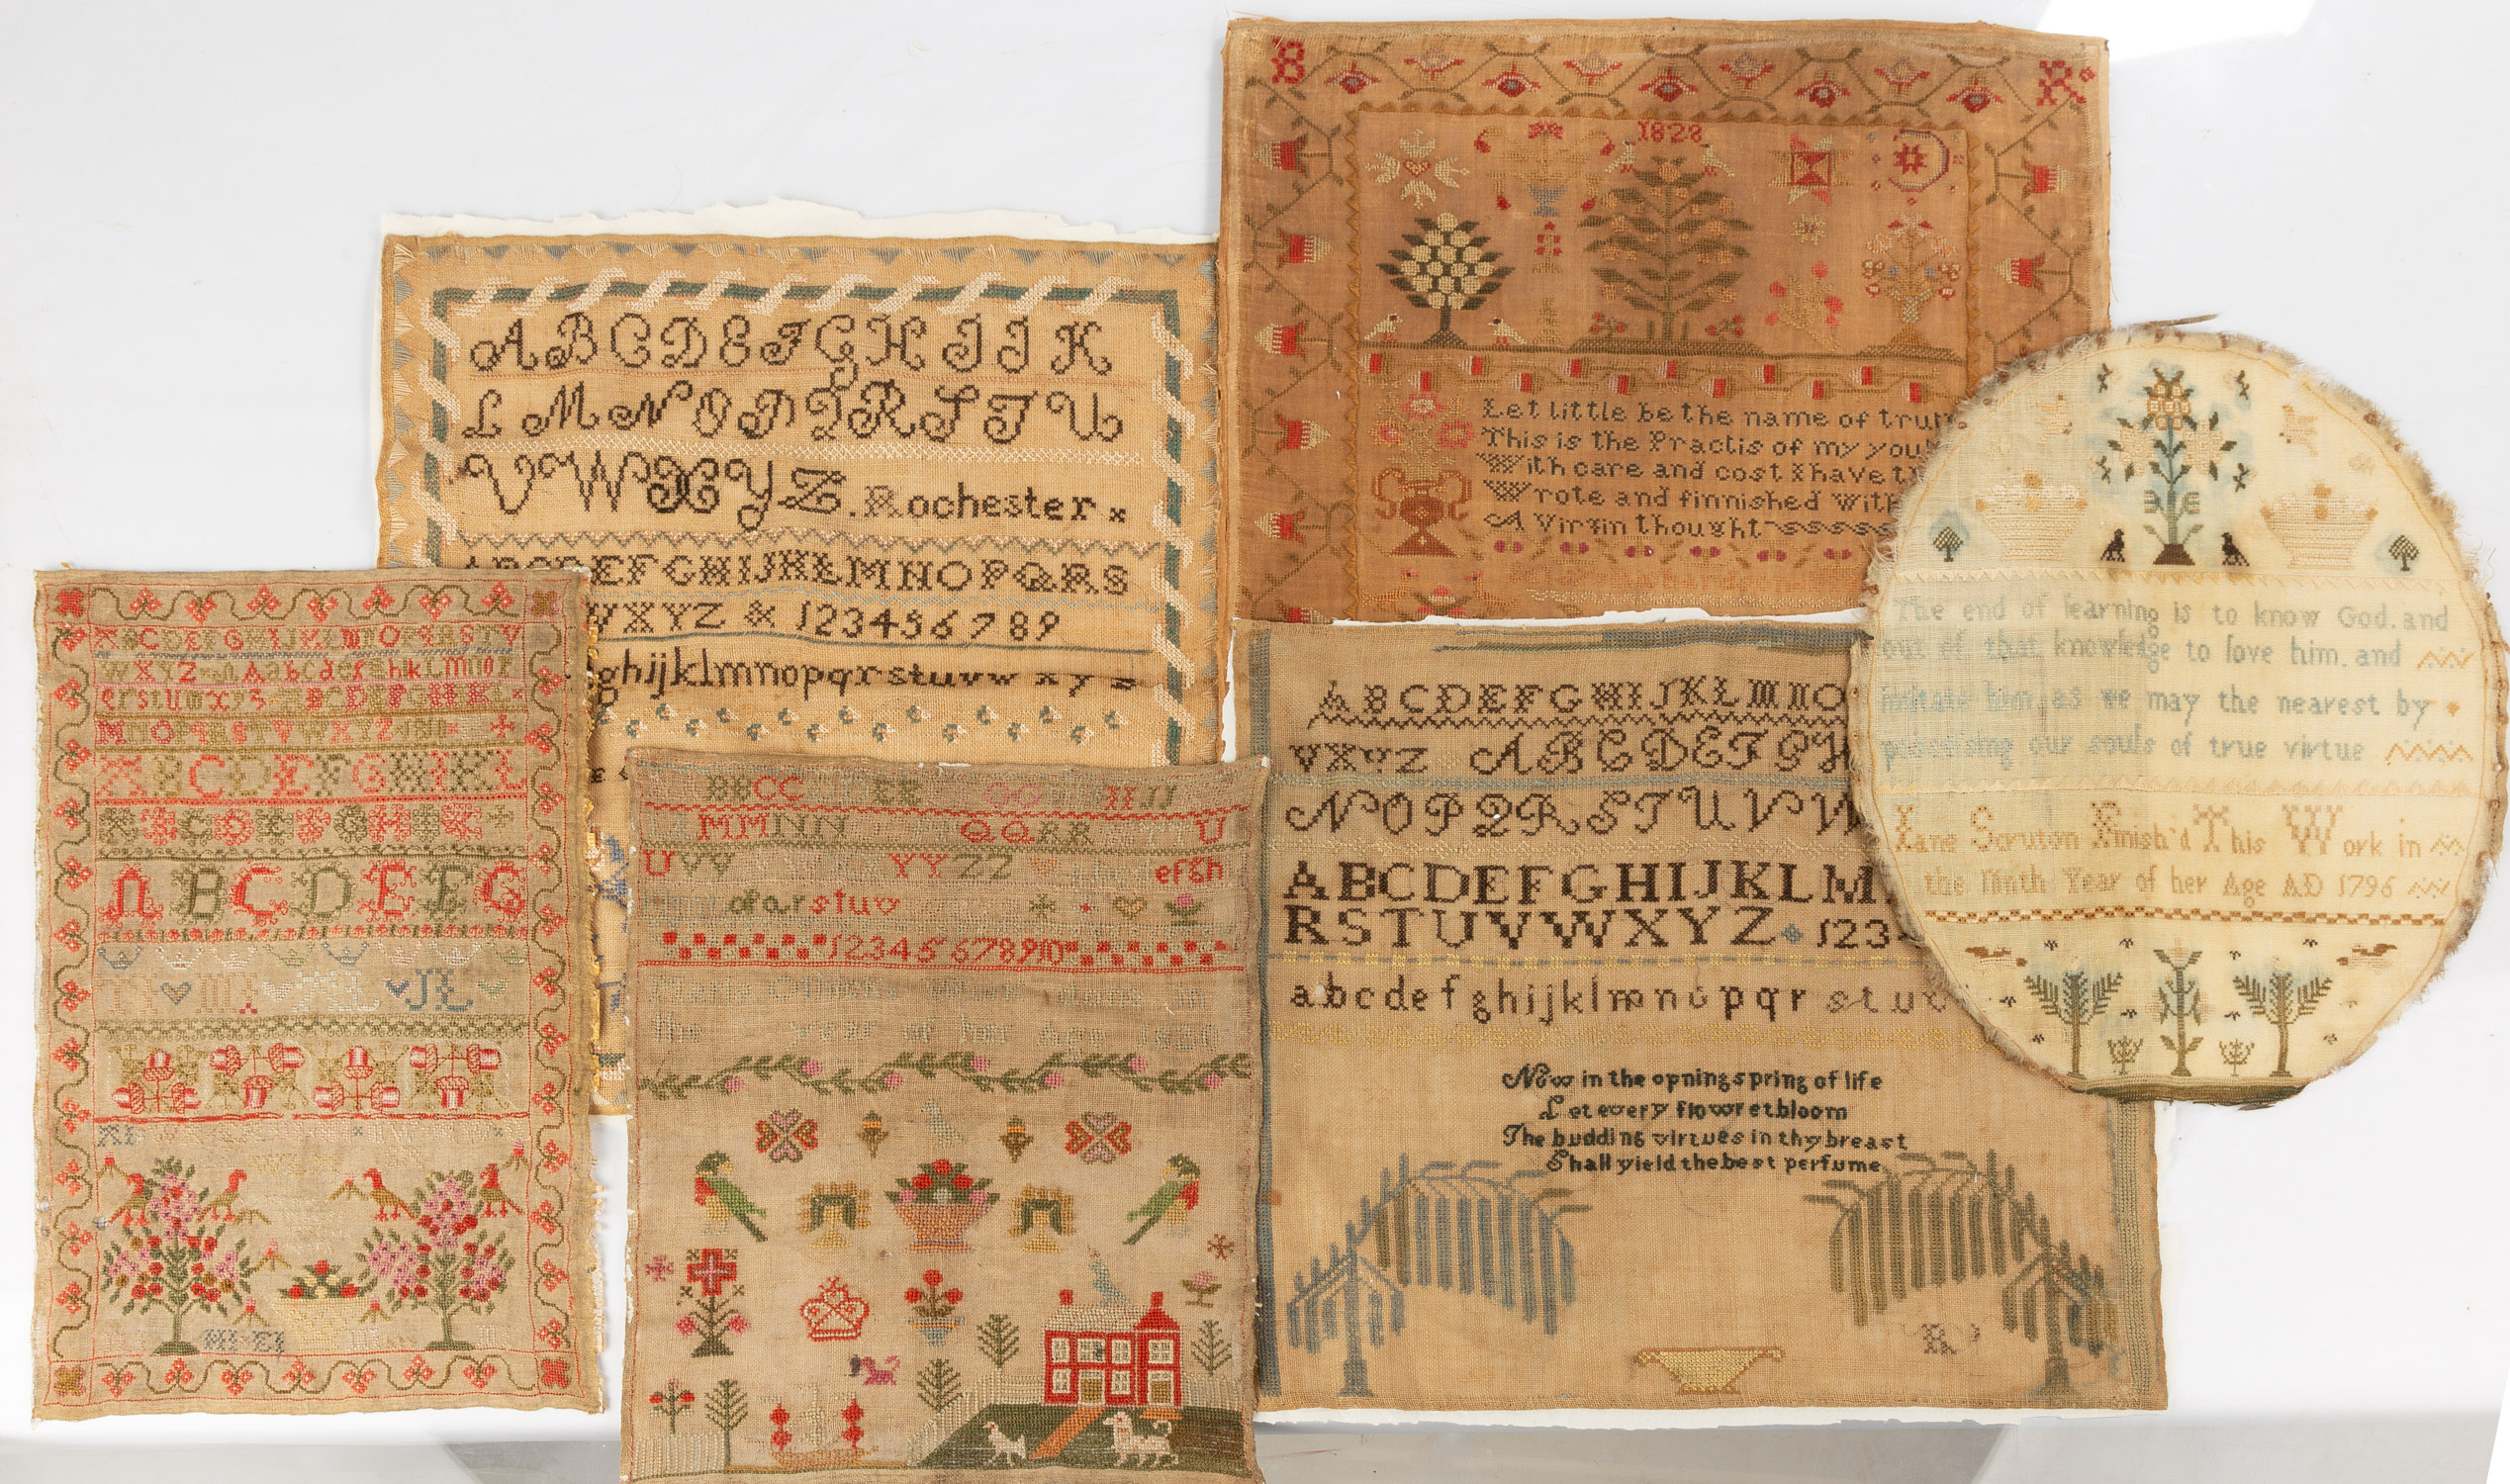 B R
1828
Let little be the name of trut
This is the Practis of my you
With care and cost I have t
Wrote and finnished With
A Virgin thought
A B C D E F G H I J K
L M N O P Q R S T U
V W X Y Z . Rochester
ABCDEFGHIJKLMNOPQRS
WXYZ & 123456789
ghijklmnopqrstuvwxyz
The end of learning is to know God. and
out of that knowledge to love him. and
imitate him. as we may the nearest by
possessing our souls of true virtue
Iane Scruton Finish'd This Work in
the Ninth Year of her Age AD 1796
ABCDEFGHIJKLMNOPQRSTV
WXYZ Aabcdefghklmnop
qrstuwxyz ABCDEFGHIKL
MNOPQRSTVWXYZ
ABCDEFGHIKL
ABCDEFG
BBCC EE GG II JJ
MMNN QQRR U
UVV YYZZ efgh
pqrstuv
12345678910
the year of her Age
ABCDEFGHIJKLMNO
VXYZ ABCDEFGH
NOPQRSTUVW
ABCDEFGHIJKLM
RSTUVWXYZ 123
abcdefghijklmnopqrstuv
Now in the opning spring of life
Let every flowret bloom
The budding virtues in thy breast
Shall yield the best perfume
R